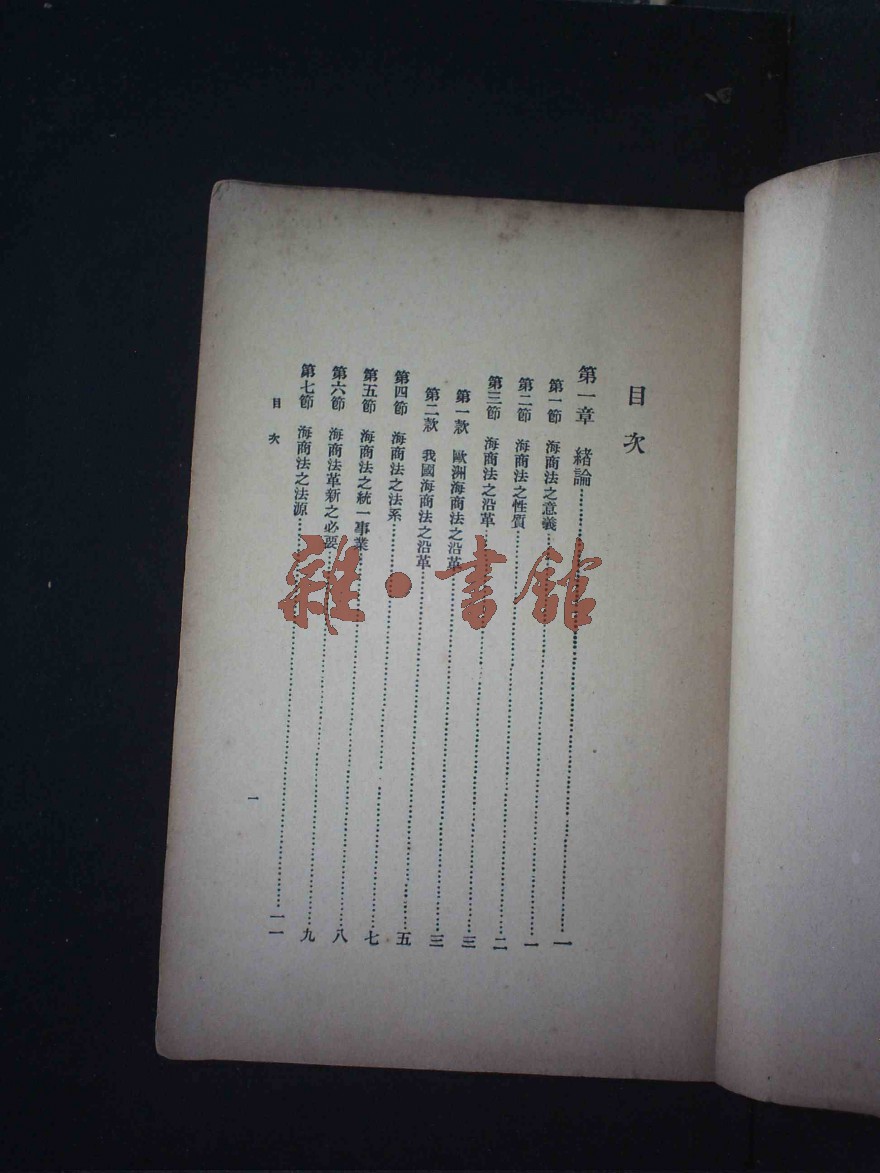 目次
第一章 緒論……一
第一節 海商法之意義……一
第二節 海商法之性質……二
第三節 海商法之沿革……三
第一款 歐洲海商法之沿革……三
第二款 我國海商法之沿革……五
第四節 海商法之法系……七
第五節 海商法之統一事業……八
第六節 海商法革新之必要……九
第七節 海商法之法源……一一
目次
一
雜·書館